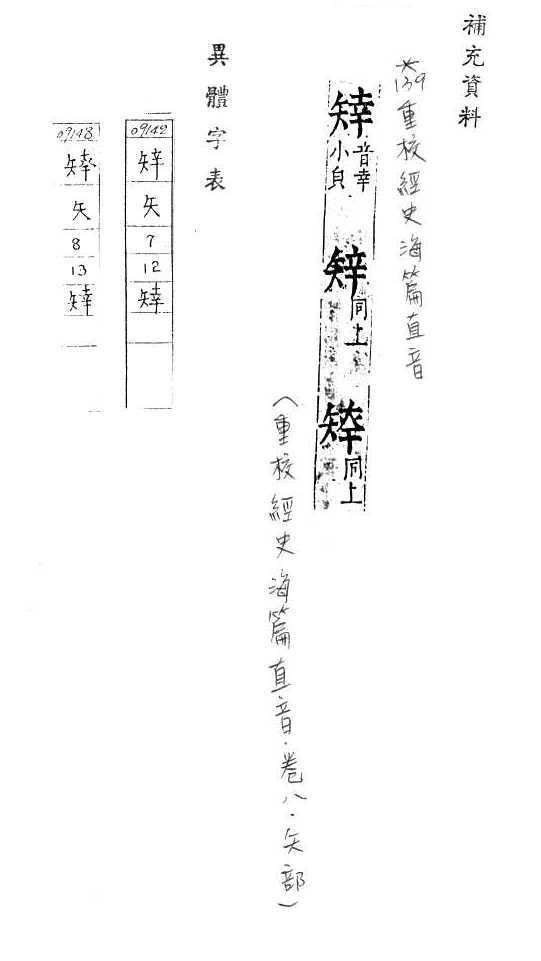 補充資料
*139重校經史海篇直音
音幸
小皃
同上
同上
(重校經史海篇直音.卷八.矢部)
異體字表
09142
矢
7
12
09148
矢
8
13